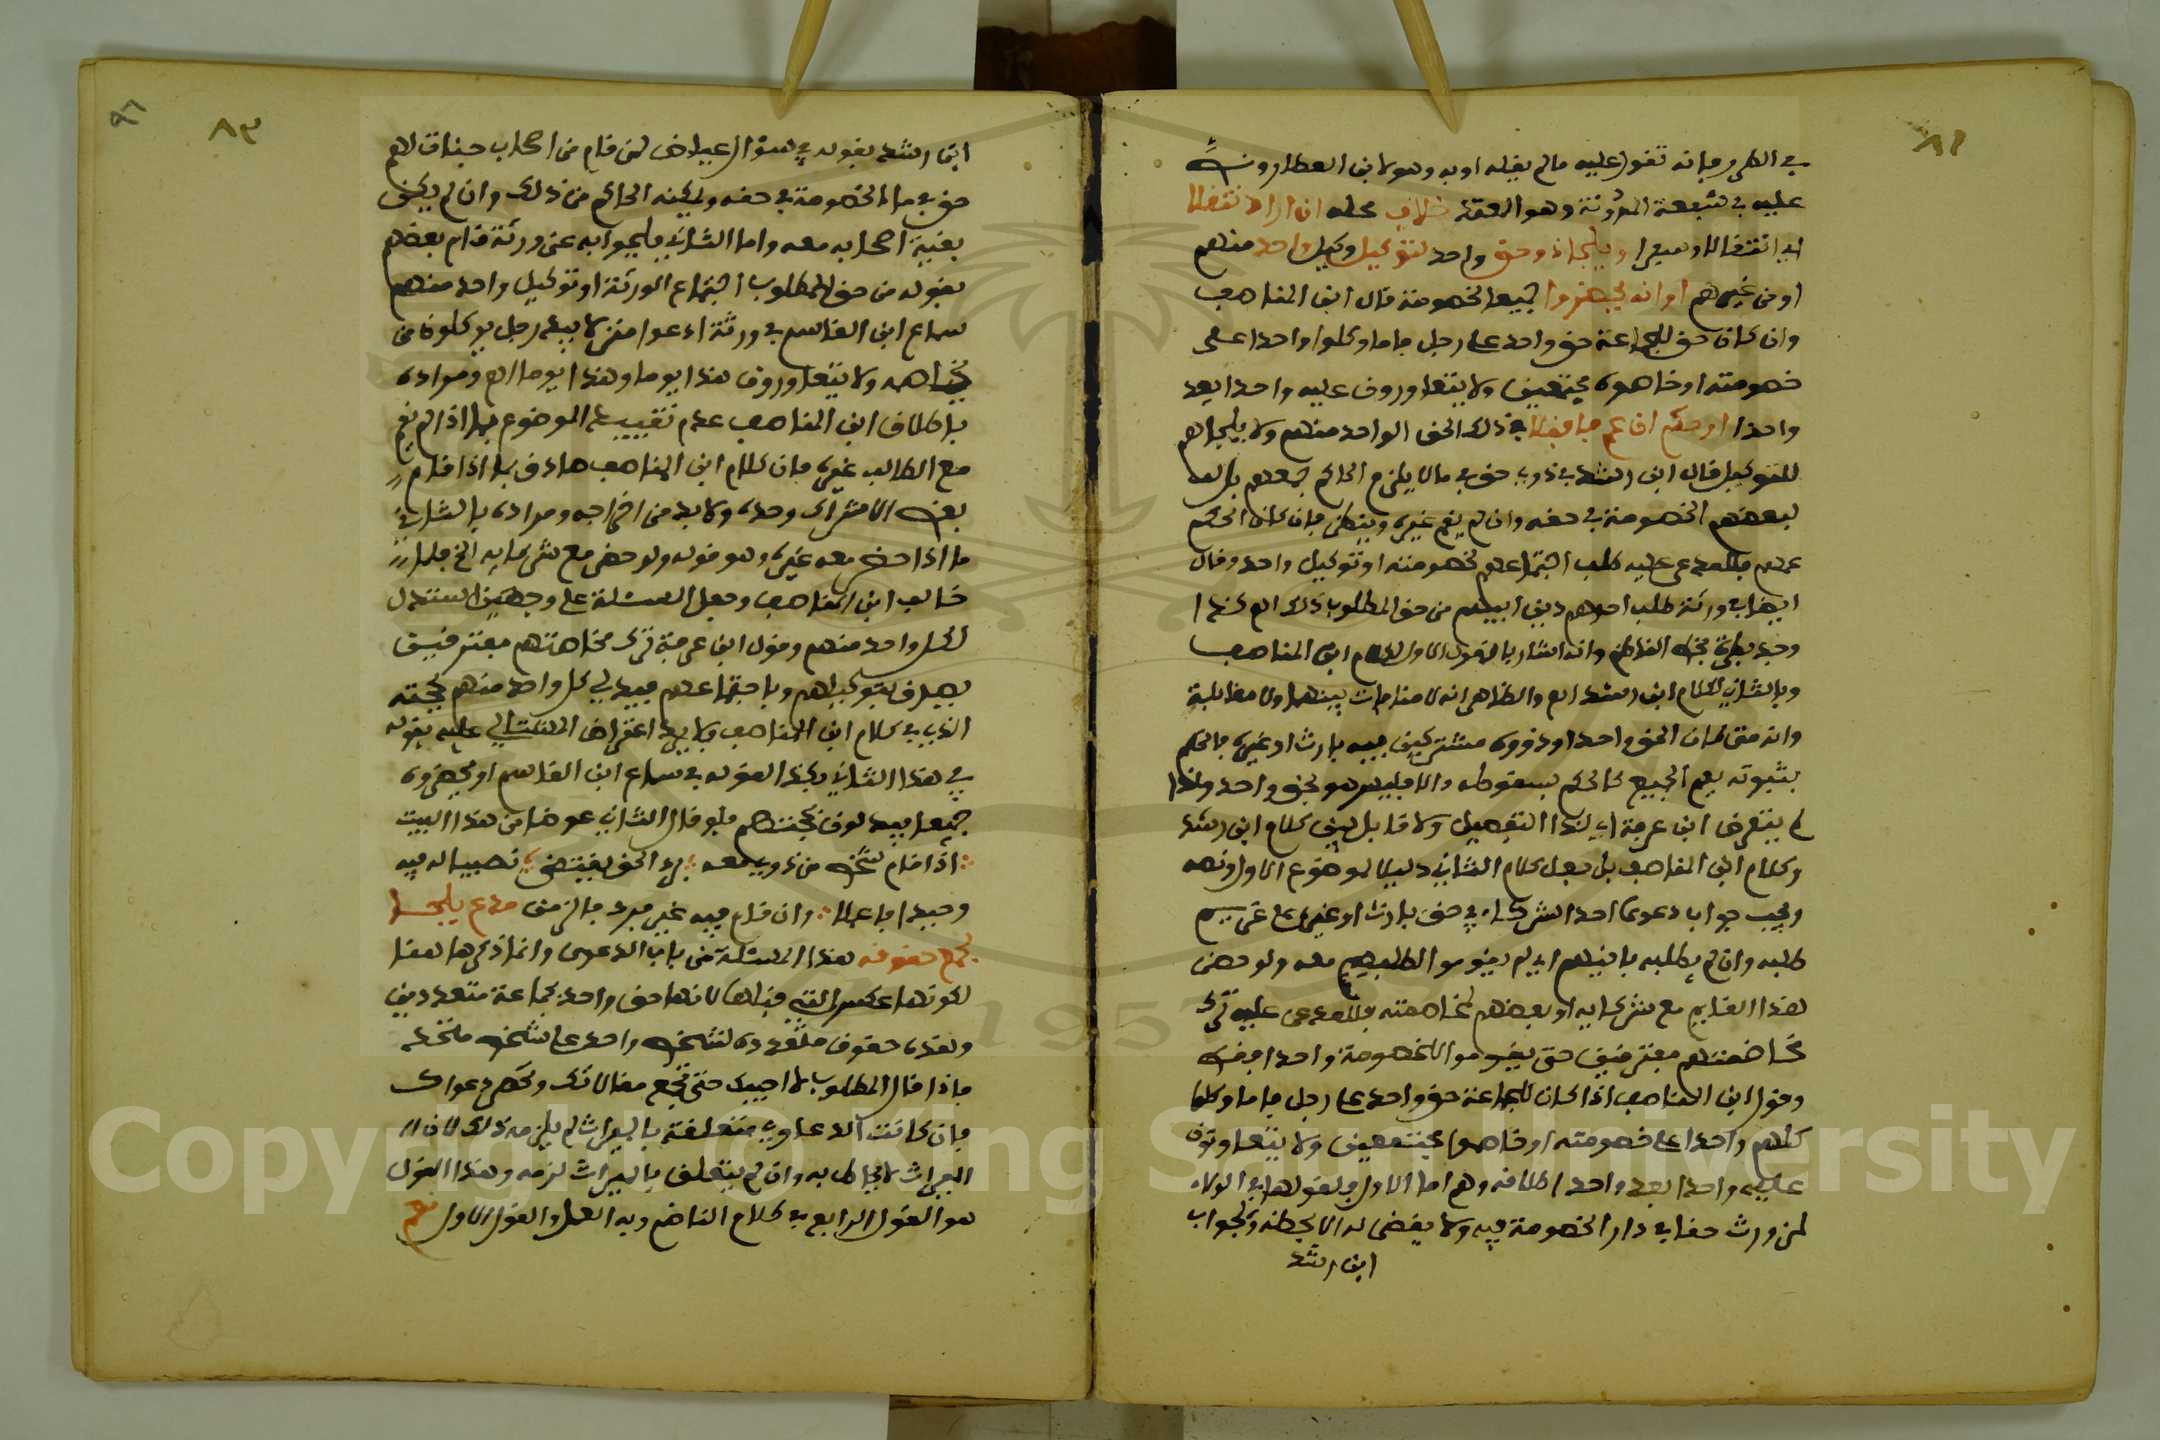 ٨٢
في الطرر بانه تقول عليه ما لم يقله او به وهو لابن العطار ونصه
عليه في شبعة المدونة وهو العقد خلاف محله ان اراد انتفالا
اي انتقالا وسعرا وبلجاذ وحق واحد لتوكيل وكيل واحد منهم
او من غيرهم او انه يحضروا جميعا لخصومة قال ابن المناصف
وان كان حق للجماعة حق واحد على رجل فاما وكلوا واحدا على
خصومته او خاصموه مجتمعين ولا يتعاورون عليه واحدا بعد
واحدا او حكم ان عم ما فعلا في ذلك الحق الواحد منهم ولا يلجاهم
للتوكيل قال ابن رشد في ذوي حق في مال لا يلزم الحاكم جمعهم بل لهم
لبعضهم الخصومة في حقه وان لم يقم غيره وينظر فان كان الحكم
عمهم فللمدعى عليه طلب اجتماعهم لخصومته او توكيل واحد وقال
ايضا في ورثة طلب احدهم دين ابيهم من حق المطلوب ذلك اهـ كذا
وجد بطرة بخط الناظم وانه اشار بالقول الاول لكلام ابن المناصف
وبالثاني لكلام ابن رشد اهـ والظاهر انه لا منافات بينهما ولا مقابلة
وانه متى كان الحق واحدا وذووه مشتركين فيه بارث او غيره فالحكم
بثبوته يعم الجميع كالحكم بسقوطه والا فليس هو بحق واحد ولذا
لم يتعرض ابن عرفة الى هذا التفصيل ولا قابل بين كلام ابن رشد
وكلام ابن المناصف بل جعل كلام الثاني دليلا لموضوع الاول ونصه
ويجب جواب دعوى احد الشركاء في حق بارث او غيره على غريم
طلبه وان لم يطلبه باقيهم اي لم يقوموا لطلبهم معه ولو حضر
هذا القايم مع شركايه او بعضهم لمخاصمته فللمدعى عليه ترك
مخاصمتهم مفترقين حتى يقوموا لخصومة واحدا فيه
وقول ابن المناصف اذا كان للجماعة حق واحد على رجل فاما وكلوا
كلهم واحدا على خصومته او خاصموا مجتمعين ولا يتعاورون
عليه واحدا بعد واحد اطلاقه وهم اما الاول فلقولها في الولاء
لمن ورث حقا في دار الخصومة فيه ولا يقضى له الا بحظه ولجواب
ابن رشد
٨٣
ابن رشد بقوله في سؤال عياض لمن قام من اصحاب حبنات لهم
حق في ماء الخصومة في حقه ويمكنه الحاكم من ذلك وان لم يكن
بقية اصحابه معه واما الثاني فلجوابه عن ورثة قام بعضهم
بقوله من حق المطلوب اجتماع الورثة او توكيل واحد منهم
سماع ابن القاسم في ورثة ادعوا منزلا بيد رجل يوكلون من
يخاصمه ولا يتعاورون هذا يوما وهذا يوما اهـ ومراده
باطلاق ابن المناصف عدم تقييده الموضوع بما اذا لم يقم
مع الطالب غيره فان كلام ابن المناصف صادق بما اذا قام
بعض الاشراك وحده ولا بد من اخراجه ومراده بالثاني
ما اذا حضر معه غيره وهو قوله ولو حضر مع شركايه الخ فلما
خالف ابن المناصف وجعل المسئلة على وجهين استدل
لكل واحد منهم وقول ابن عرفة ترك مخاصمتهم مفترقين
يصدق بتوكيلهم وباجتماعهم فيدلي كل واحد منهم بحجته
الذي في كلام ابن المناصف ولا يرد اعتراض عليه بقوله
في هذا الثاني بكذا العزلة في سماع ابن القاسم او يحضروه
جميعا فيدلون بحجتهم فلو قال الثاني عوضا من هذا البيت
اذا قام شخص من ذويه معه برء الحق يقتضى نصيبا له فيه
وحيدا فاعلما وان قام فيه غير فرد فالزمن مدع يلجا
لجمع حقوقه هذا المسئلة من باب الدعوى وانما ذكرها هنا
لكونها عكس التي قبلها لانها حق واحد لجماعة متعددين
وهذه حقوق متعددة لشخص واحد على شخص متحد
فاذا قال المطلوب لا اجيبك حتى تجمع مقالاتك وتحصر دعواك
فان كانت الدعاوي متعلقة بالميراث لم يلزمه ذلك لان
الميراث لا يحاط به وان لم يتعلق بالميراث لزمه وهذا القول
هو القول الرابع في كلام الناظم وبه العمل والقول الاول نعم
Copyright © King Saud University
1957